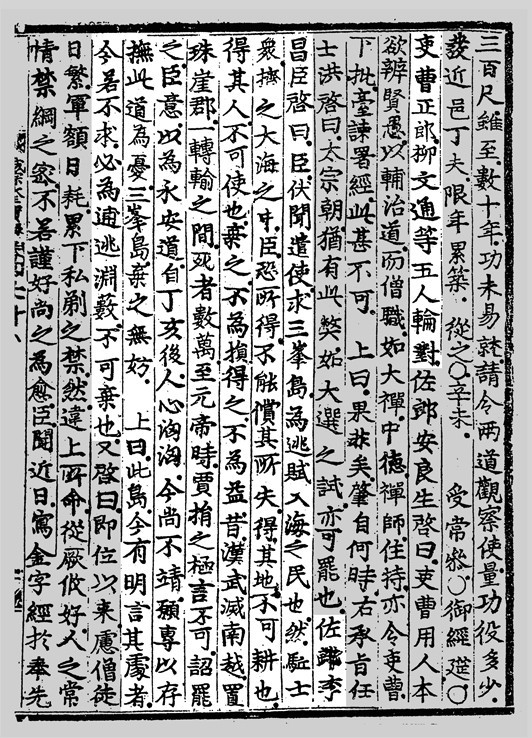 三百尺雖至數十年功未易就請令兩道觀察使量功役多少
發近邑丁夫限年累築 從之○辛未 受常參○御經筵○
吏曹正郎柳文通等五人輪對佐郎安良生啓曰吏曹用人本
欲辨賢愚以輔治道而僧職如大禪中德禪師住持亦令吏曹
下批臺諫署經此甚不可 上曰果非矣肇自何時右承旨任
士洪啓曰太宗朝猶有此弊如大選之試亦可罷也佐郎李
昌臣啓曰臣伏聞遣使求三峯島爲逃賦入海之民也然駈士
衆擠之大海之中臣恐所得不能償其所失得其地不可耕也
得其人不可使也棄之不爲損得之不爲益昔漢武滅南越置
珠崖郡一轉輸之間死者數萬至元帝時賈捐之極言不可詔罷
之臣意以爲永安道自丁亥後人心洶洶今尚不靖願專以存
撫此道爲憂三峯島棄之無妨 上曰此島今有明言其處者
今若不求必爲逋逃淵藪不可棄也又啓曰即位以來慮僧徒
日繁軍額日耗累下私剃之禁然違上所命從厥攸好人之常
情禁綱之密不若謹好尚之爲愈臣聞近日寫金字經於奉先